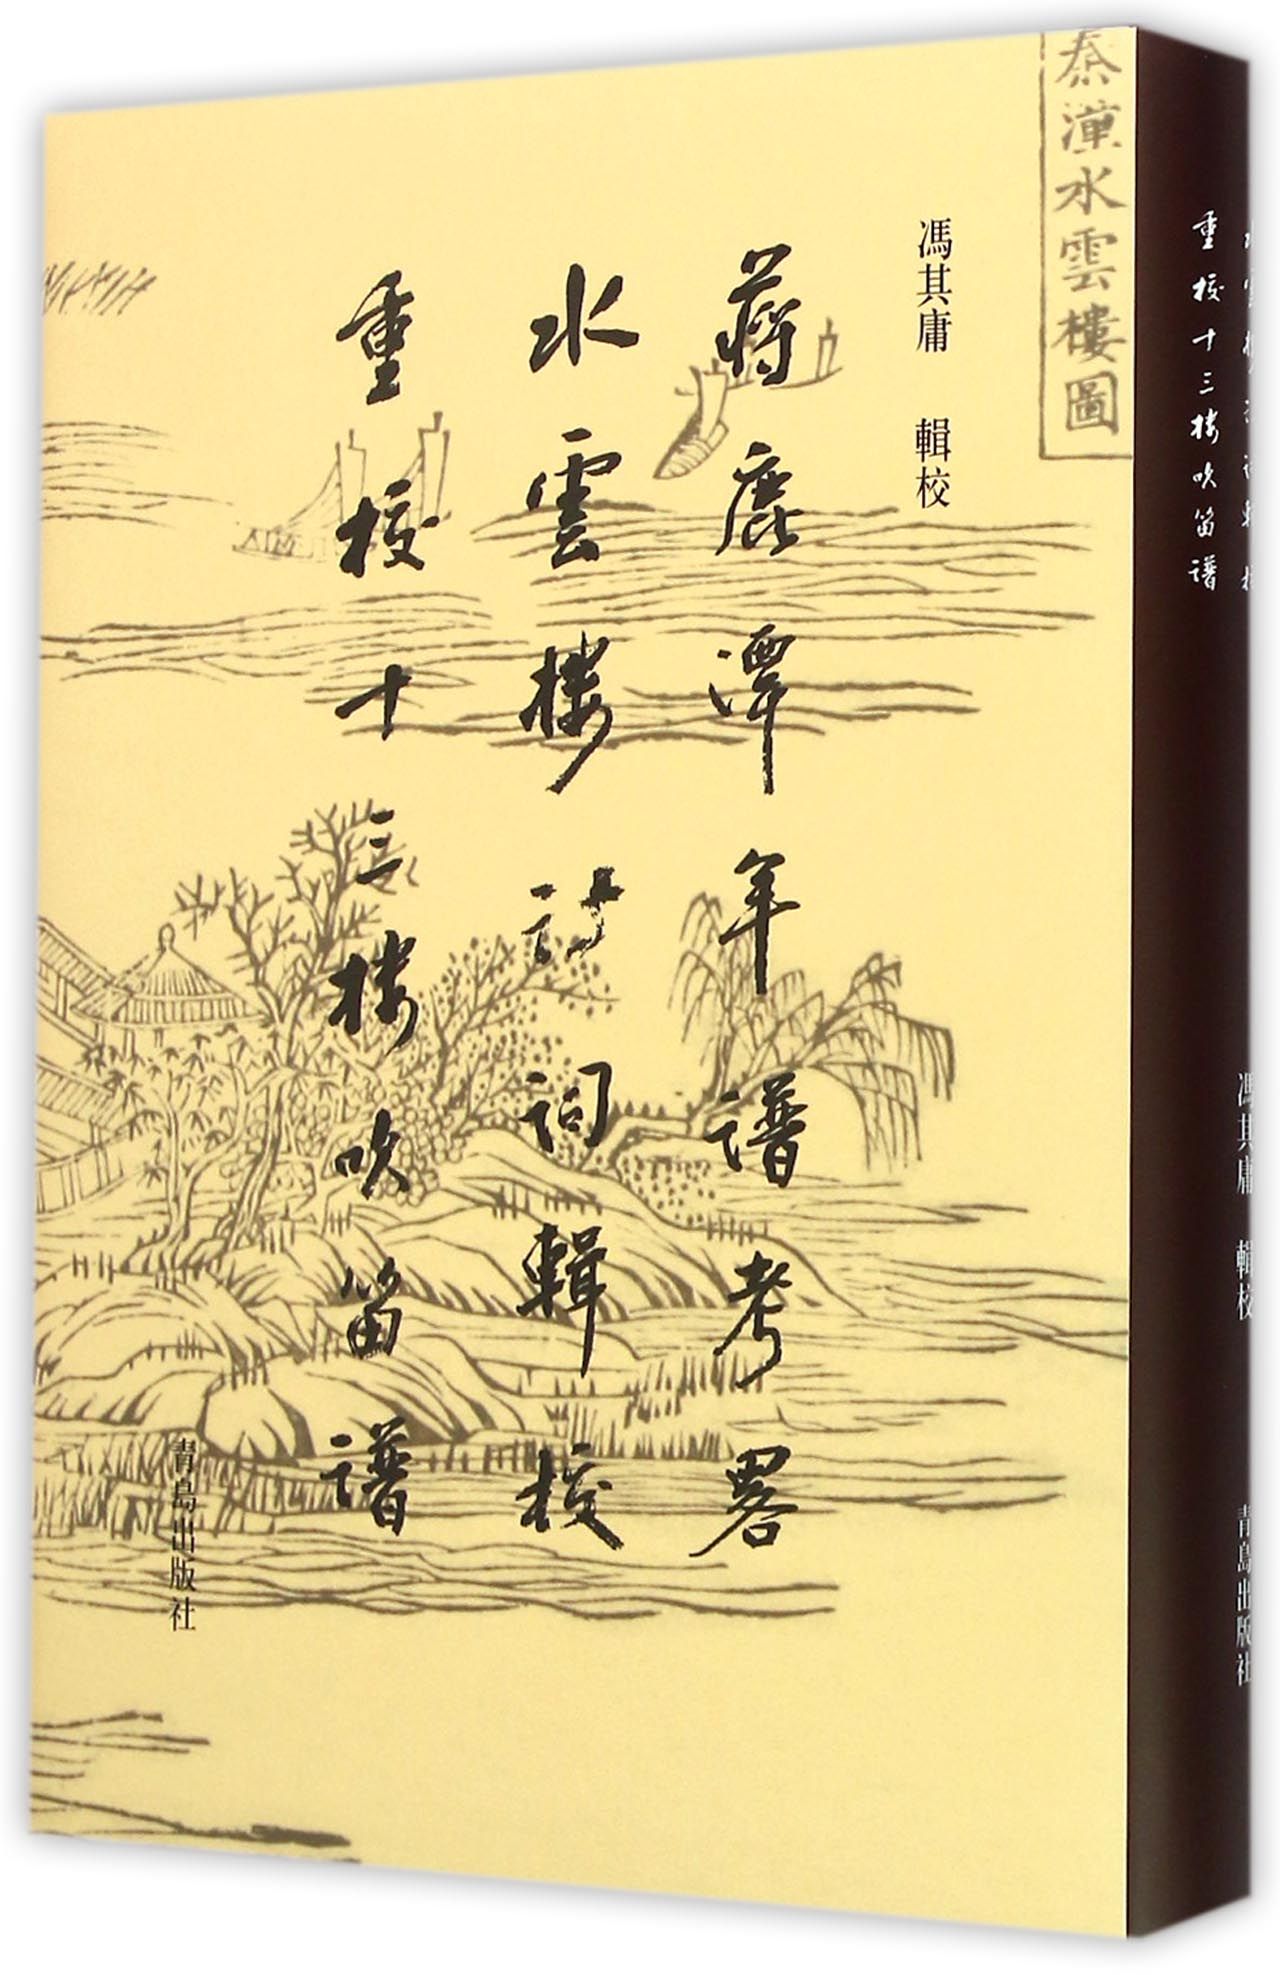 水雲樓圖
馮其庸 輯校
蔣鹿潭年譜考畧
水雲楼詩詞輯校
重校十三楼吹笛譜
青島出版社
重校十三楼吹笛譜
馮其庸 輯校
青島出版社